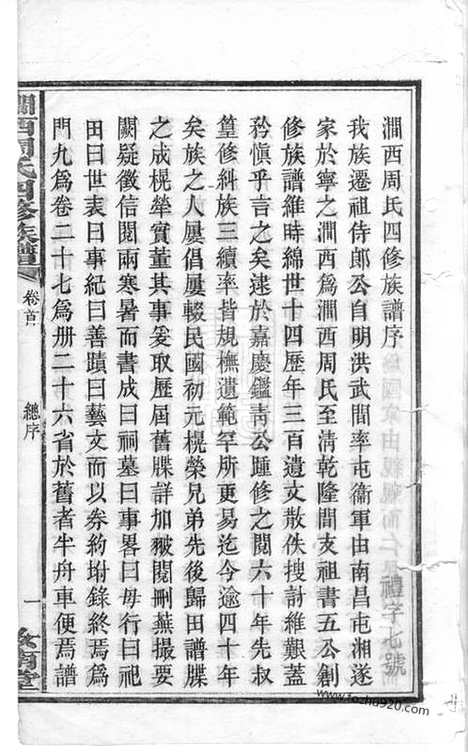 澗西周氏四修族譜序
我族遷祖侍郎公自明洪武間率屯衞軍由南昌屯湘遂
家於寧之澗西爲澗西周氏至清乾隆間支祖書五公創
修族譜維時綿世十四歷年三百遺文散佚搜計維艱蓋
矜愼乎言之矣逮於嘉慶鑑靑公踵修之閱六十年先叔
篁修糾族三續率皆規橅遺範罕所更易迄今逾四十年
矣族之人屢倡屢輟民國初元棍榮兄弟先後歸田譜牒
之成棍犖實董其事爰取歷屆舊牒詳加披閱刪蕪撮要
闕疑徵信閱兩寒暑而書成曰祠墓曰事畧曰毋行曰祀
田曰世表曰事紀曰善蹟曰藝文而以券約坿錄終焉爲
門九爲卷二十七爲册二十六省於舊者半舟車便焉譜
澗西周氏四修族譜
卷首
總序
一
汝南堂
禮字七號
www.fozhu920.com